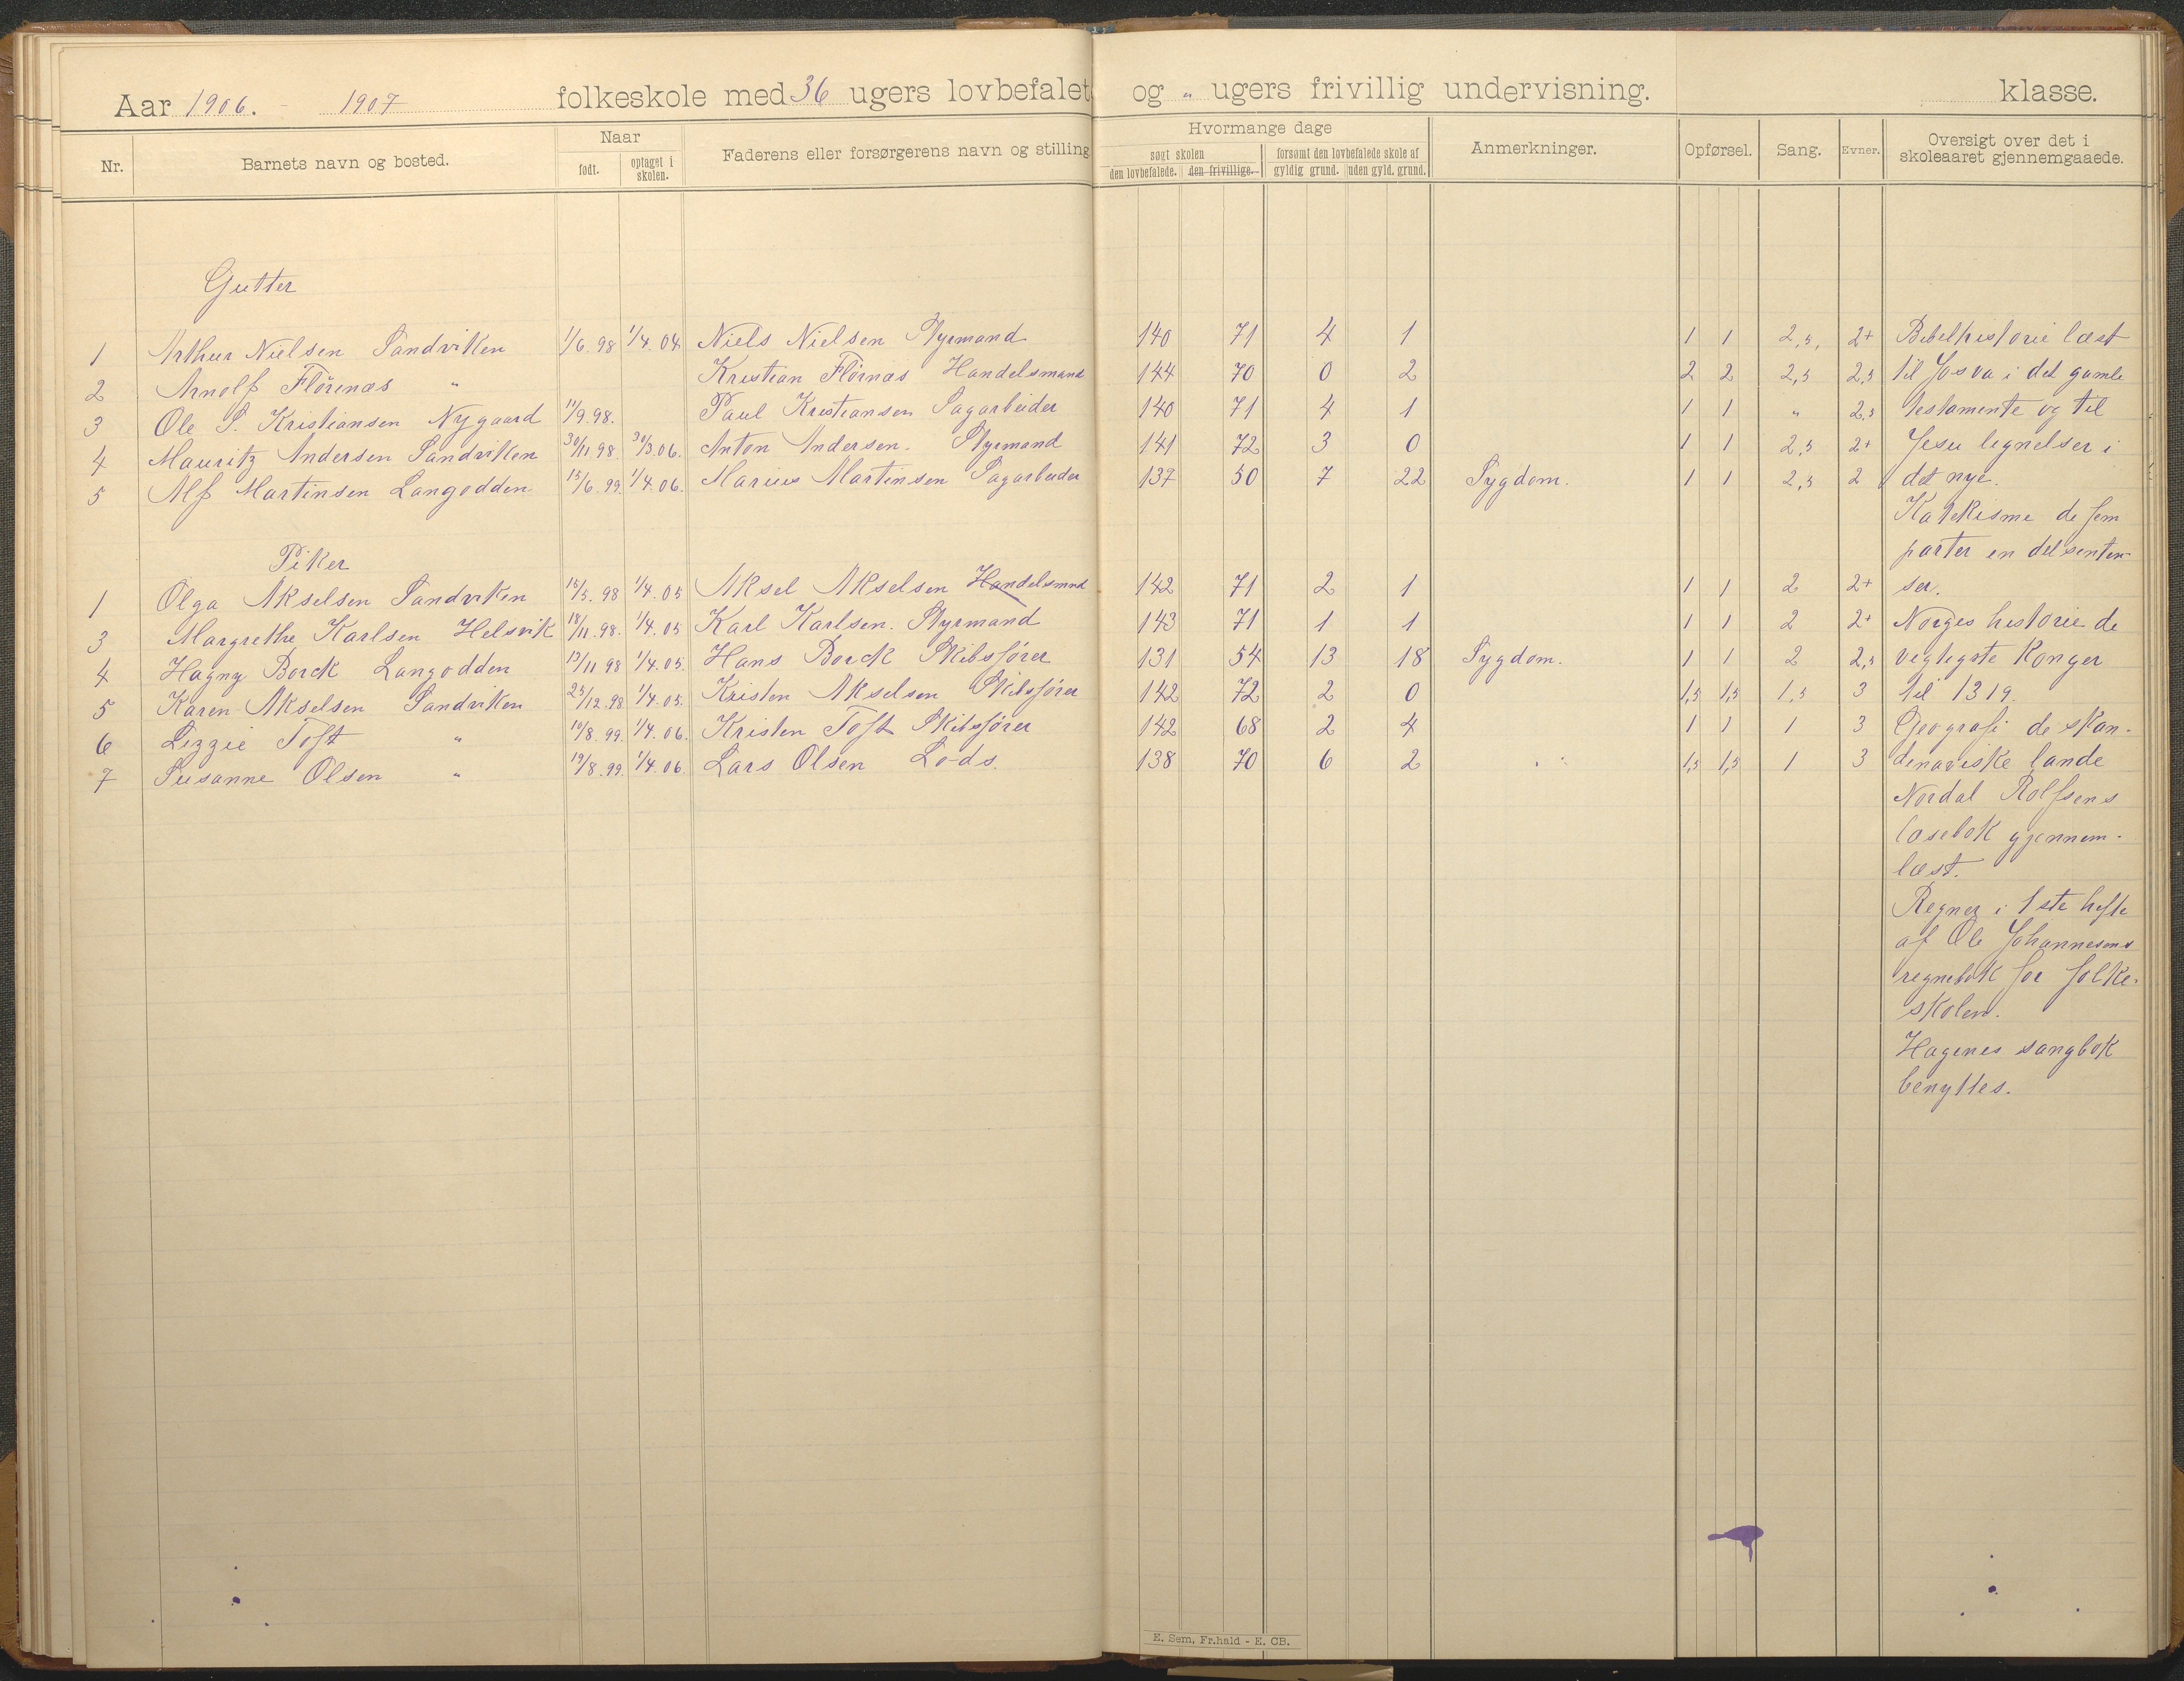 Aar 1906. - 1907 folkeskole med 36 ugers lovbefalet og „ ugers frivillig undervisning. klasse.
Nr. Barnets navn og bosted. Naar født. optaget i skolen. Faderens eller forsørgerens navn og stilling Hvormange dage søgt skolen den lovbefalede. den frivillige. forsømt den lovbefalede skole af gyldig grund. uden gyld. grund. Anmerkninger. Opførsel. Sang. Evner. Oversigt over det i skoleaaret gjennemgaaede.
Gutter
1 Arthur Nielsen Sandviken 1/6 98 1/4. 04 Niels Nielsen Styrmand 140 71 4 1 1 1 2,5, 2+ Bibelhistorie læst
2 Arnolf Flörenæs „ Kristian Flörnæs Handelsmand 144 70 0 2 2 2 2,5 2,5 til Josva i det gamle
3 Ole S. Kristiansen Nygaard 11/9.98. Paul Kristiansen Sagarbeider 140 71 4 1 1 1 „ 2,5 testamente og til
4 Mauritz Andersen Sandviken 30/11 98. 30/3 06. Anton Andersen. Styrmand 141 72 3 0 1 1 2,5 2+ Jesu lignelser i
5 Alf Martinsen Langodden 15/6. 99. 1/4. 06. Marius Martinsen Sagarbeider 137 50 7 22 Sygdom. 1 1 2,5 2 det nye.
Katekisme de fem
Piker
parter en del senten-
1 Olga Akselsen Sandviken 15/5. 98 1/4. 05 Aksel Akselsen Handelsmnd 142 71 2 1 1 1 2 2+ ser.
3 Margrethe Karlsen Helsvik 18/11. 98. 1/4. 05 Karl Karlsen. Styrmand 143 71 1 1 1 1 2 2+ Norges historie de
4 Hagny Borck Langodden 13/11 98 1/4. 05. Hans Borck Skibsfører 131 54 13 18 Sygdom. 1 1 2 2,5 vigtigste konger
5 Karen Akselsen Sandviken 25/12. 98. 1/4. 05. Kristen Akselsen Skibsfører 142 72 2 0 1,5 1,5 1,5 3 til 1319.
6 Lizzie Toft „ 10/8. 99. 1/4. 06. Kristen Toft Skibsfører 142 68 2 4 1 1 1 3 Geografi de skan-
7 Susanne Olsen „ 19/8. 99. 1/4. 06 Lars Olsen Lods. 138 70 6 2 1,5 1,5 1 3 denaviske lande
Nordal Rolfsens
læsebok gjennem-
læst.
Regner i 1ste hefte
af Ole Johannesens
regnebok for folke-
skolen.
Hagenes sangbok
benyttes.
E. Sem, Fr.hald - E. CB.